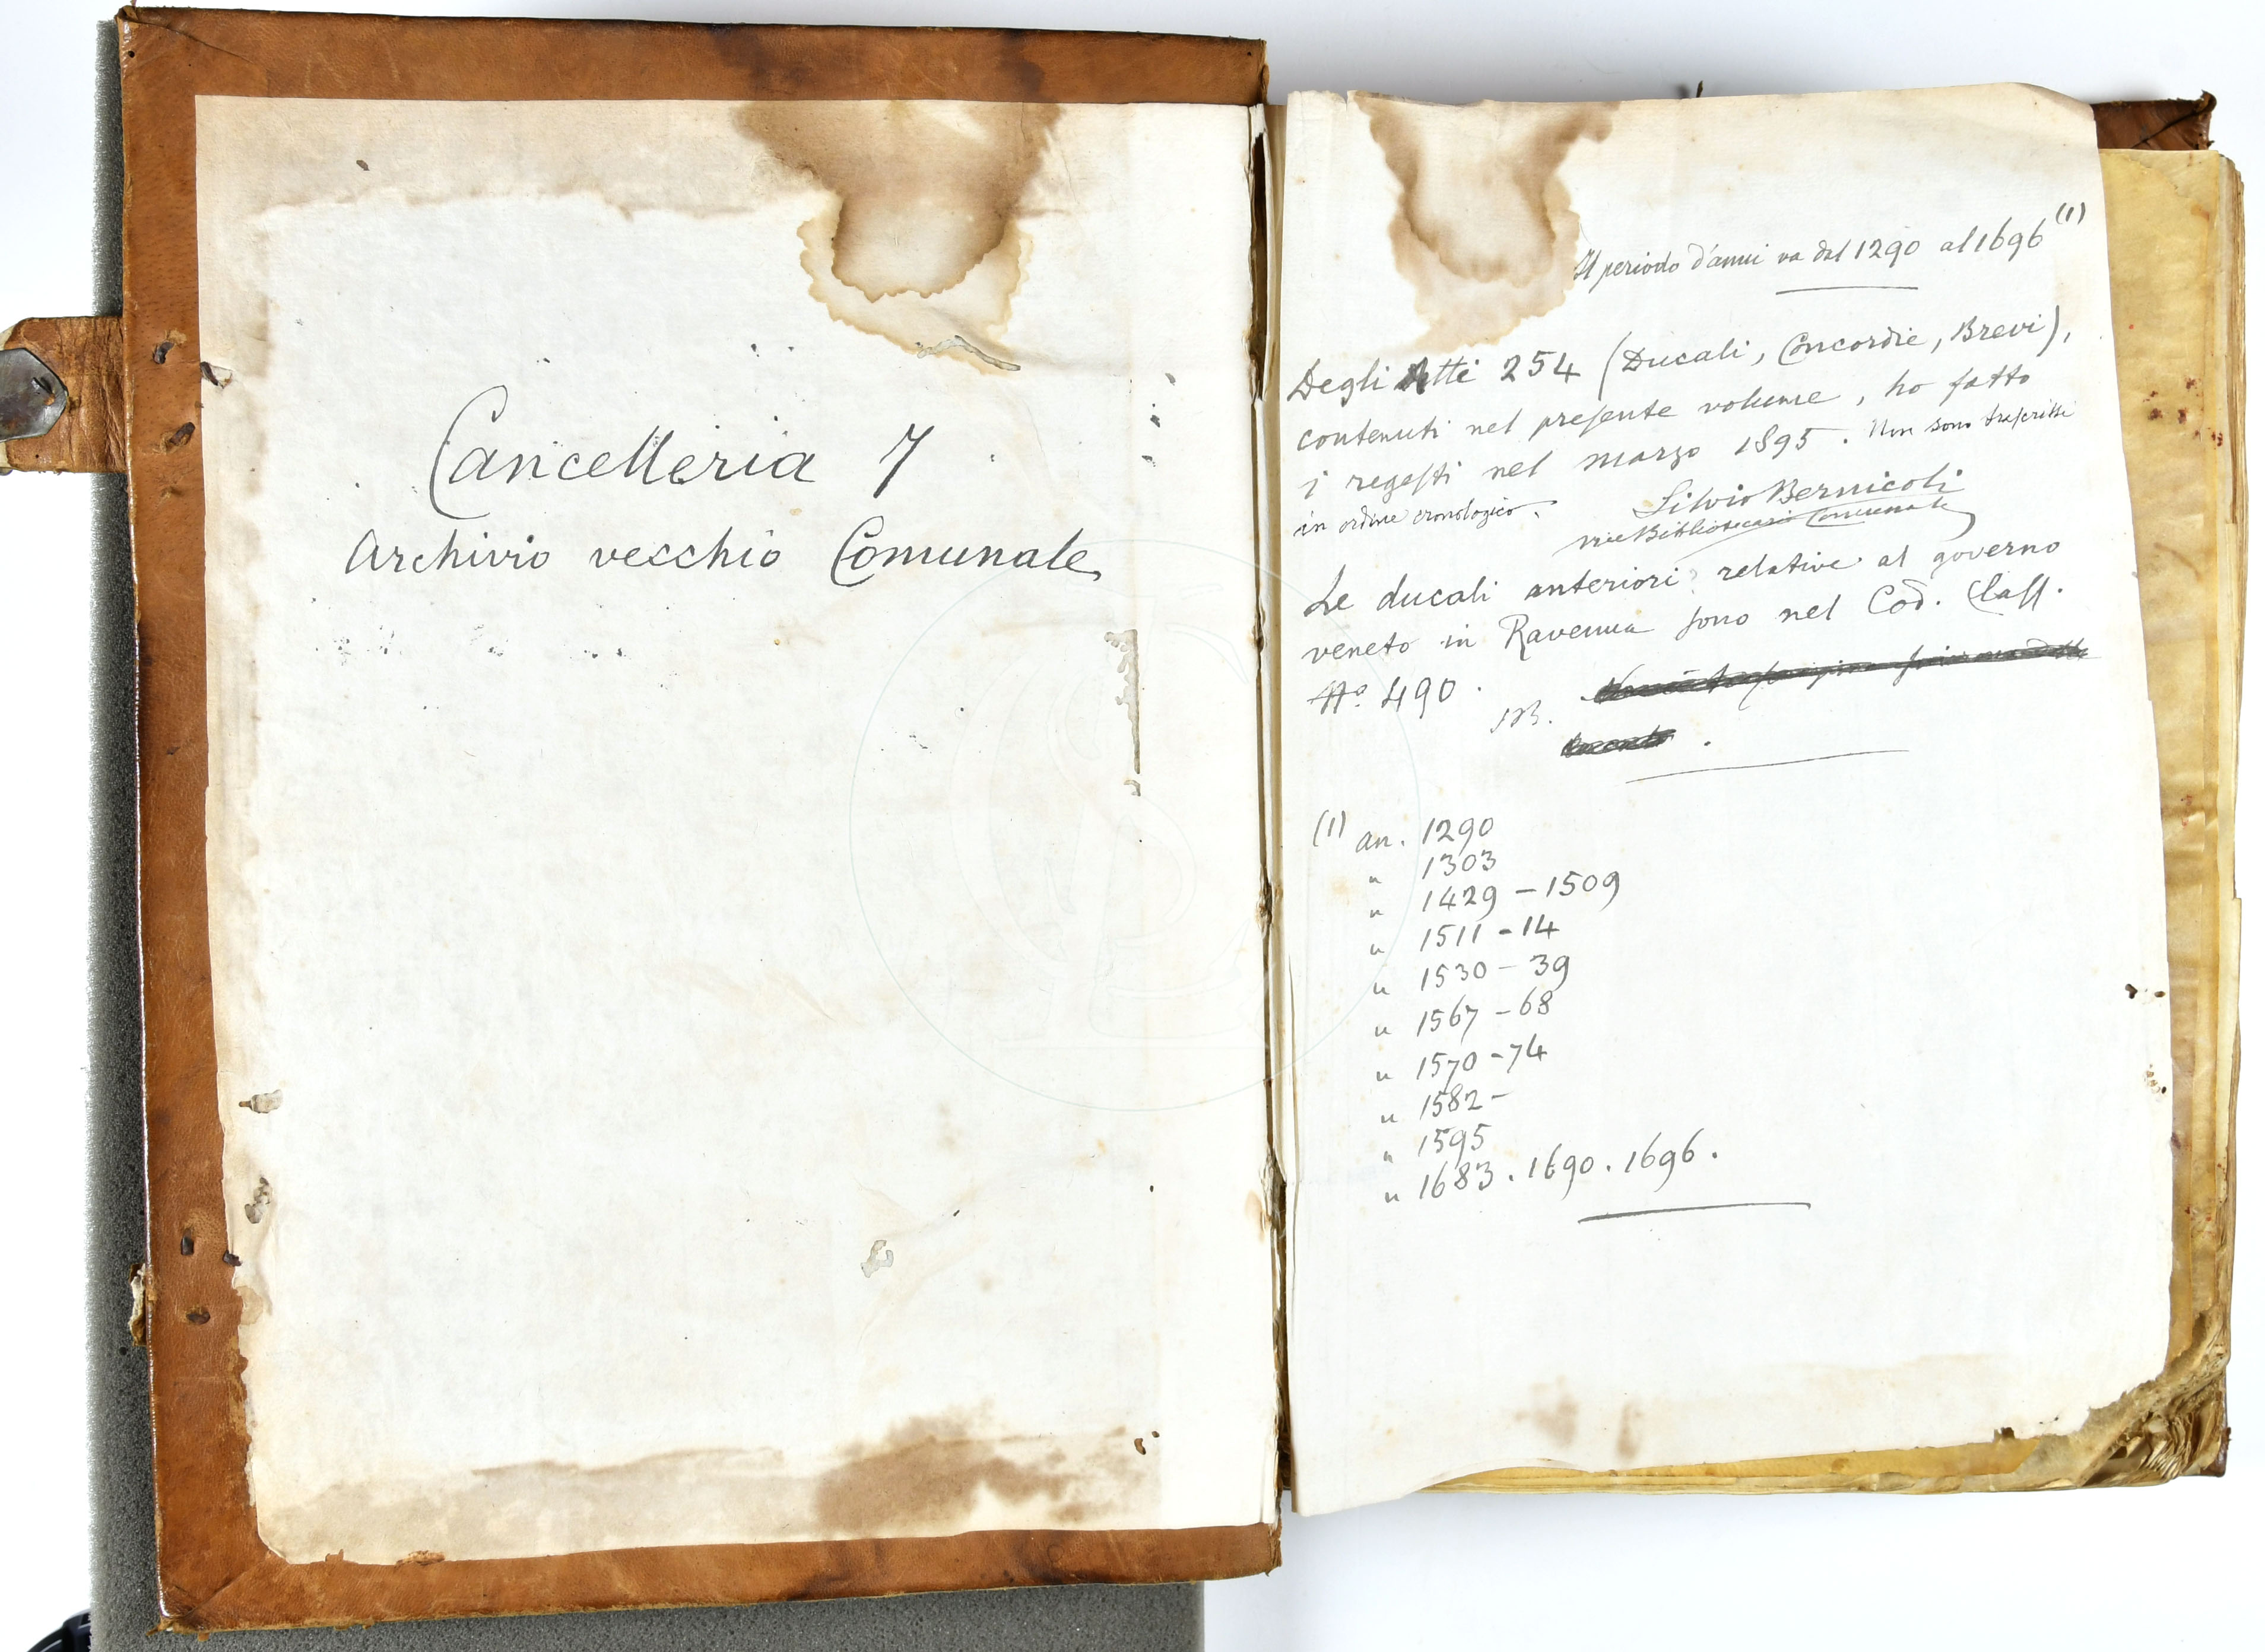 Cancelleria 7
Archivio vecchio Comunale
Il periodo d'anni va dal 1290 al 1696 (1)
Degli Atti 254 (Ducali, Concordie, Brevi),
contenuti nel presente volume, ho fatto
i regesti nel marzo 1895. Non sono trascritti
in ordine cronologico.
Silvio Bernicoli
vice Bibliotecario Comunale
Le ducali anteriori relative al governo
veneto in Ravenna sono nel Cod. Class.
No. 490.
(1) an. 1290
" 1303
" 1429 - 1509
" 1511 - 14
" 1530 - 39
" 1567 - 68
" 1570 - 74
" 1582 -
" 1595
" 1683. 1690. 1696.